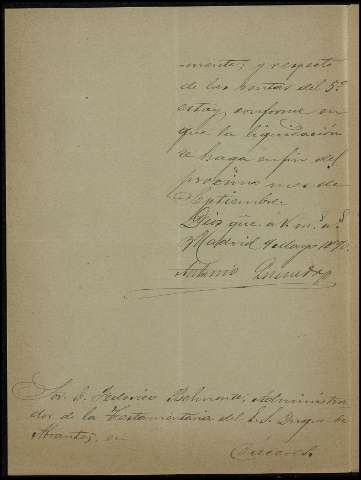 mente; y respecto
de las rentas del 5º
estoy conforme en
que la liquidación
se haga en fin del
proximo mes de
Septiembre.
Dios gue. á V. m.s a.s
Madrid Mayo
Antonio
Sor. D. Federico Belmonte, Administra
dor de la Testamentaria del E. S. Duque de
Abrantes, en
Cáceres.